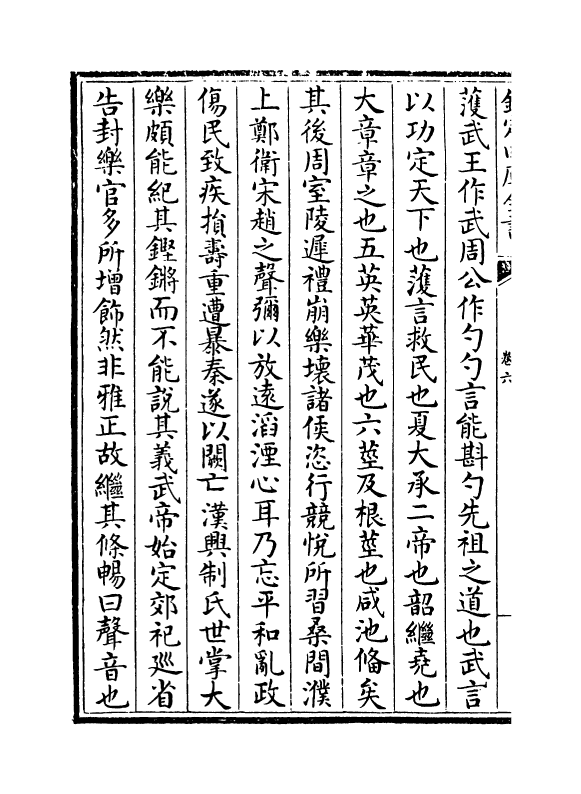 卷六
頀武王作武周公作勺勺言能斟勺先祖之道也武言
以功定天下也頀言救民也夏大承二帝也韶繼堯也
大章章之也五英英華茂也六莖及根莖也咸池備矣
其後周室陵遲禮崩樂壞諸侯恣行競悅所習桑間濮
上鄭衛宋趙之聲彌以放逺滔湮心耳乃忘平和亂政
傷民致疾損壽重遭暴秦遂以闕亡漢興制氏世掌大
樂頗能紀其鏗鏘而不能說其義武帝始定郊祀廵省
告封樂官多所增飾然非雅正故繼其條暢曰聲音也